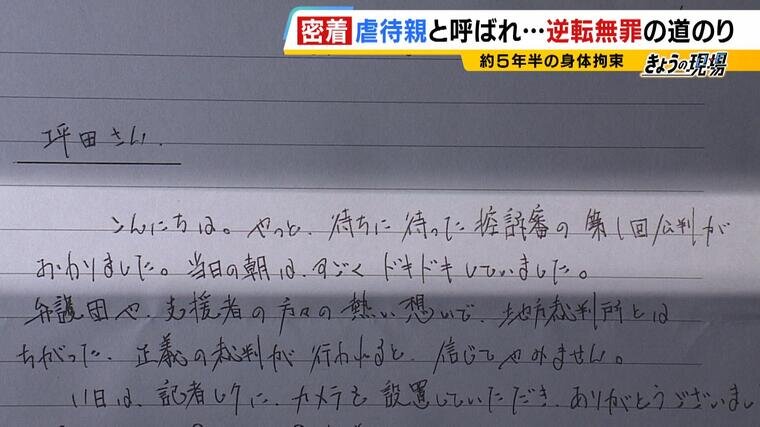 密着 虐待親と呼ばれ…逆転無罪の道のり
約5年半の身体拘束 きょうの現場
坪田さん.
こんにちは。やっと、待ちに待った控訴審の第1回公判が
おわりました。当日の朝は、すごくドキドキしていました。
弁護団や、支援者の方々の熱い想いで、地方裁判所とは
ちがった、正義の裁判が行われると、信じてやみません。
11日は、記者レクに、カメラを設置していただき、ありがとうございまし